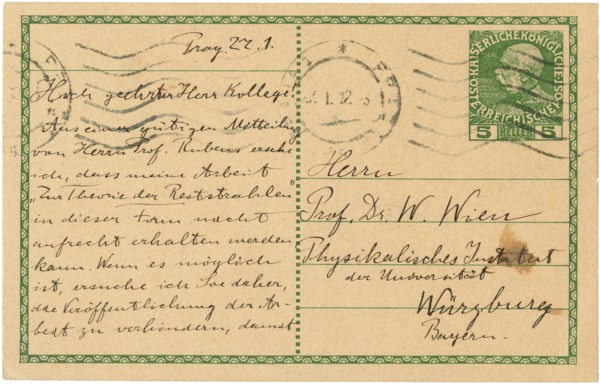 Prag 22. 1.
Hoch geehrter Herr Kollege!
Aus einer gütigen Mitteilung
von Herrn Prof. Rubens ersehe
ich, dass meine Arbeit
„Zur Theorie der Reststrahlen"
in dieser Form nicht
aufrecht erhalten werden
kann. Wenn es möglich
ist, ersuche ich Sie daher,
das Veröffentlichung der Ar-
beit zu verhindern, damit
KAISERLICHEKÖNIGLICHE
ÖSTERREICHISCHE
5 HELLER 5
Herrn
Prof. Dr. W. Wien
Physikalisches Institut
der Universität
Würzburg
Bayern.